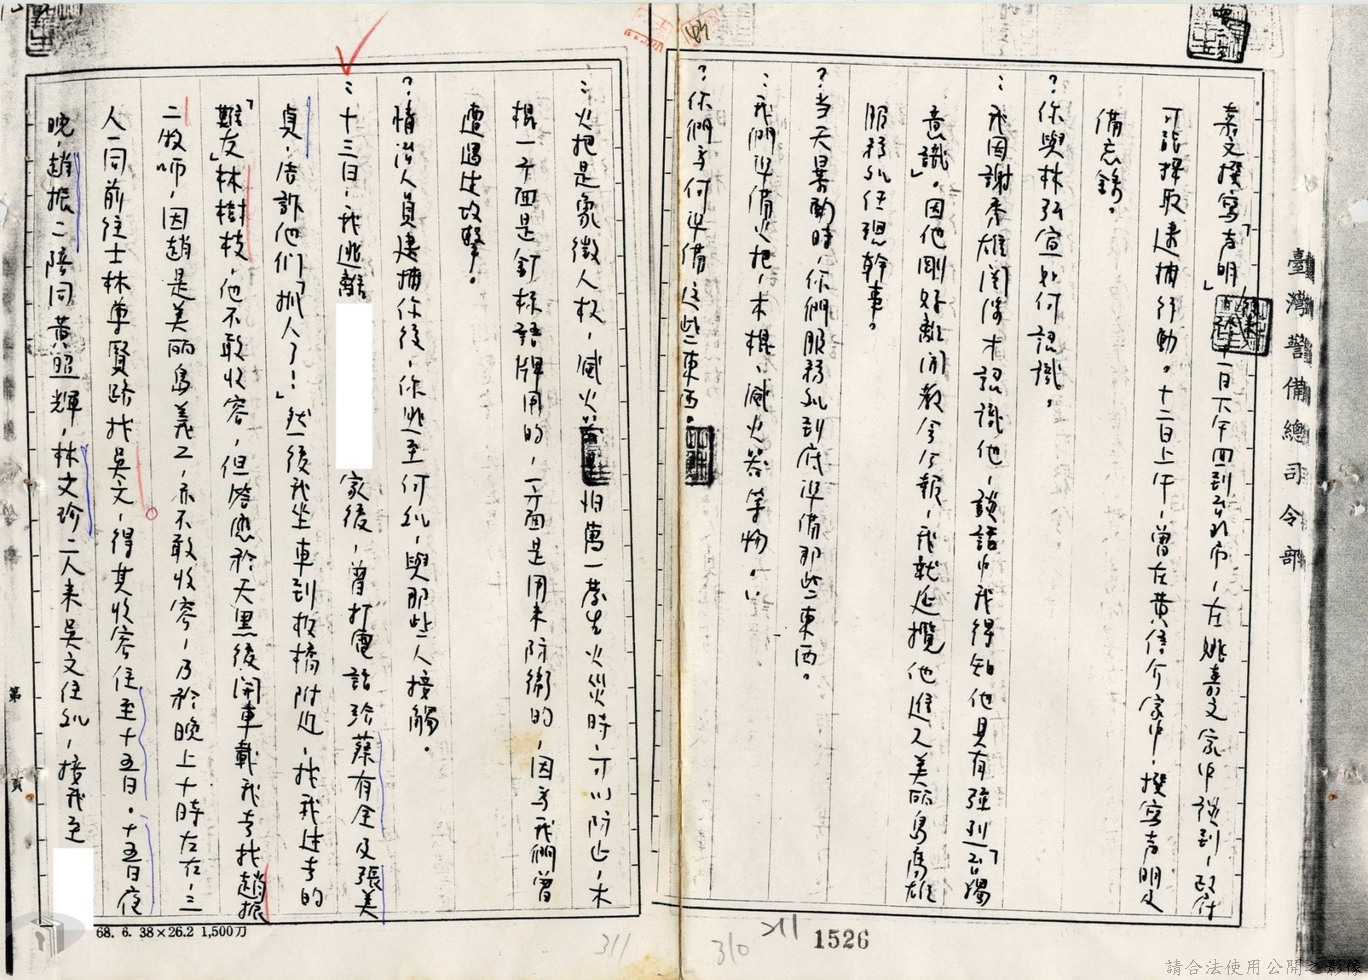 臺灣警備總司令部
嘉文撰寫「聲明」
十一日下午四到台北市，在姚嘉文家中談到，政府
可能採取逮捕行動。十二日上午，曾在黃信介家中，撰寫聲明及
備忘錄。
？你與林弘宣如何認識。
：我因謝秀雄關係才認識他，談話中我得知他具有強烈「台獨
意識」。因他剛好離開教會公報，我就延攬他進入美丽島高雄
服務処任總幹事。
？当天暴動時，你們服務処到底準備那些東西。
：我們準備火把，木棍，滅火器等物。
？你們為何準備這些東西。
：火把是象徵人权，滅火器是怕萬一發生火災時，可以防止，木
棍一方面是釘标語牌用的，一方面是用來防衛的，因為我們曾
遭遇过攻擊。
？情治人員逮捕你後，你逃至何処，與那些人接觸。
：十三日，我逃離
家後，曾打電話給蔡有全及張美
貞，告訴他們「抓人了！」然後我坐車到板橋附近，找我过去的
「難友」林樹枝，他不敢收容，但答應於天黑後開車載我去找趙振
二牧师，因趙是美丽島義工，亦不敢收容，乃於晚上十時左右，三
人一同前往士林尊賢路找吳文，得其收容住至十五日。十五日夜
晚，趙振二陪同黃昭輝，林文珍二人來吳文住処，接我至
第
頁
68. 6. 38×26.2 1,500刀
311
310
311
1526
請合法使用公開之影像